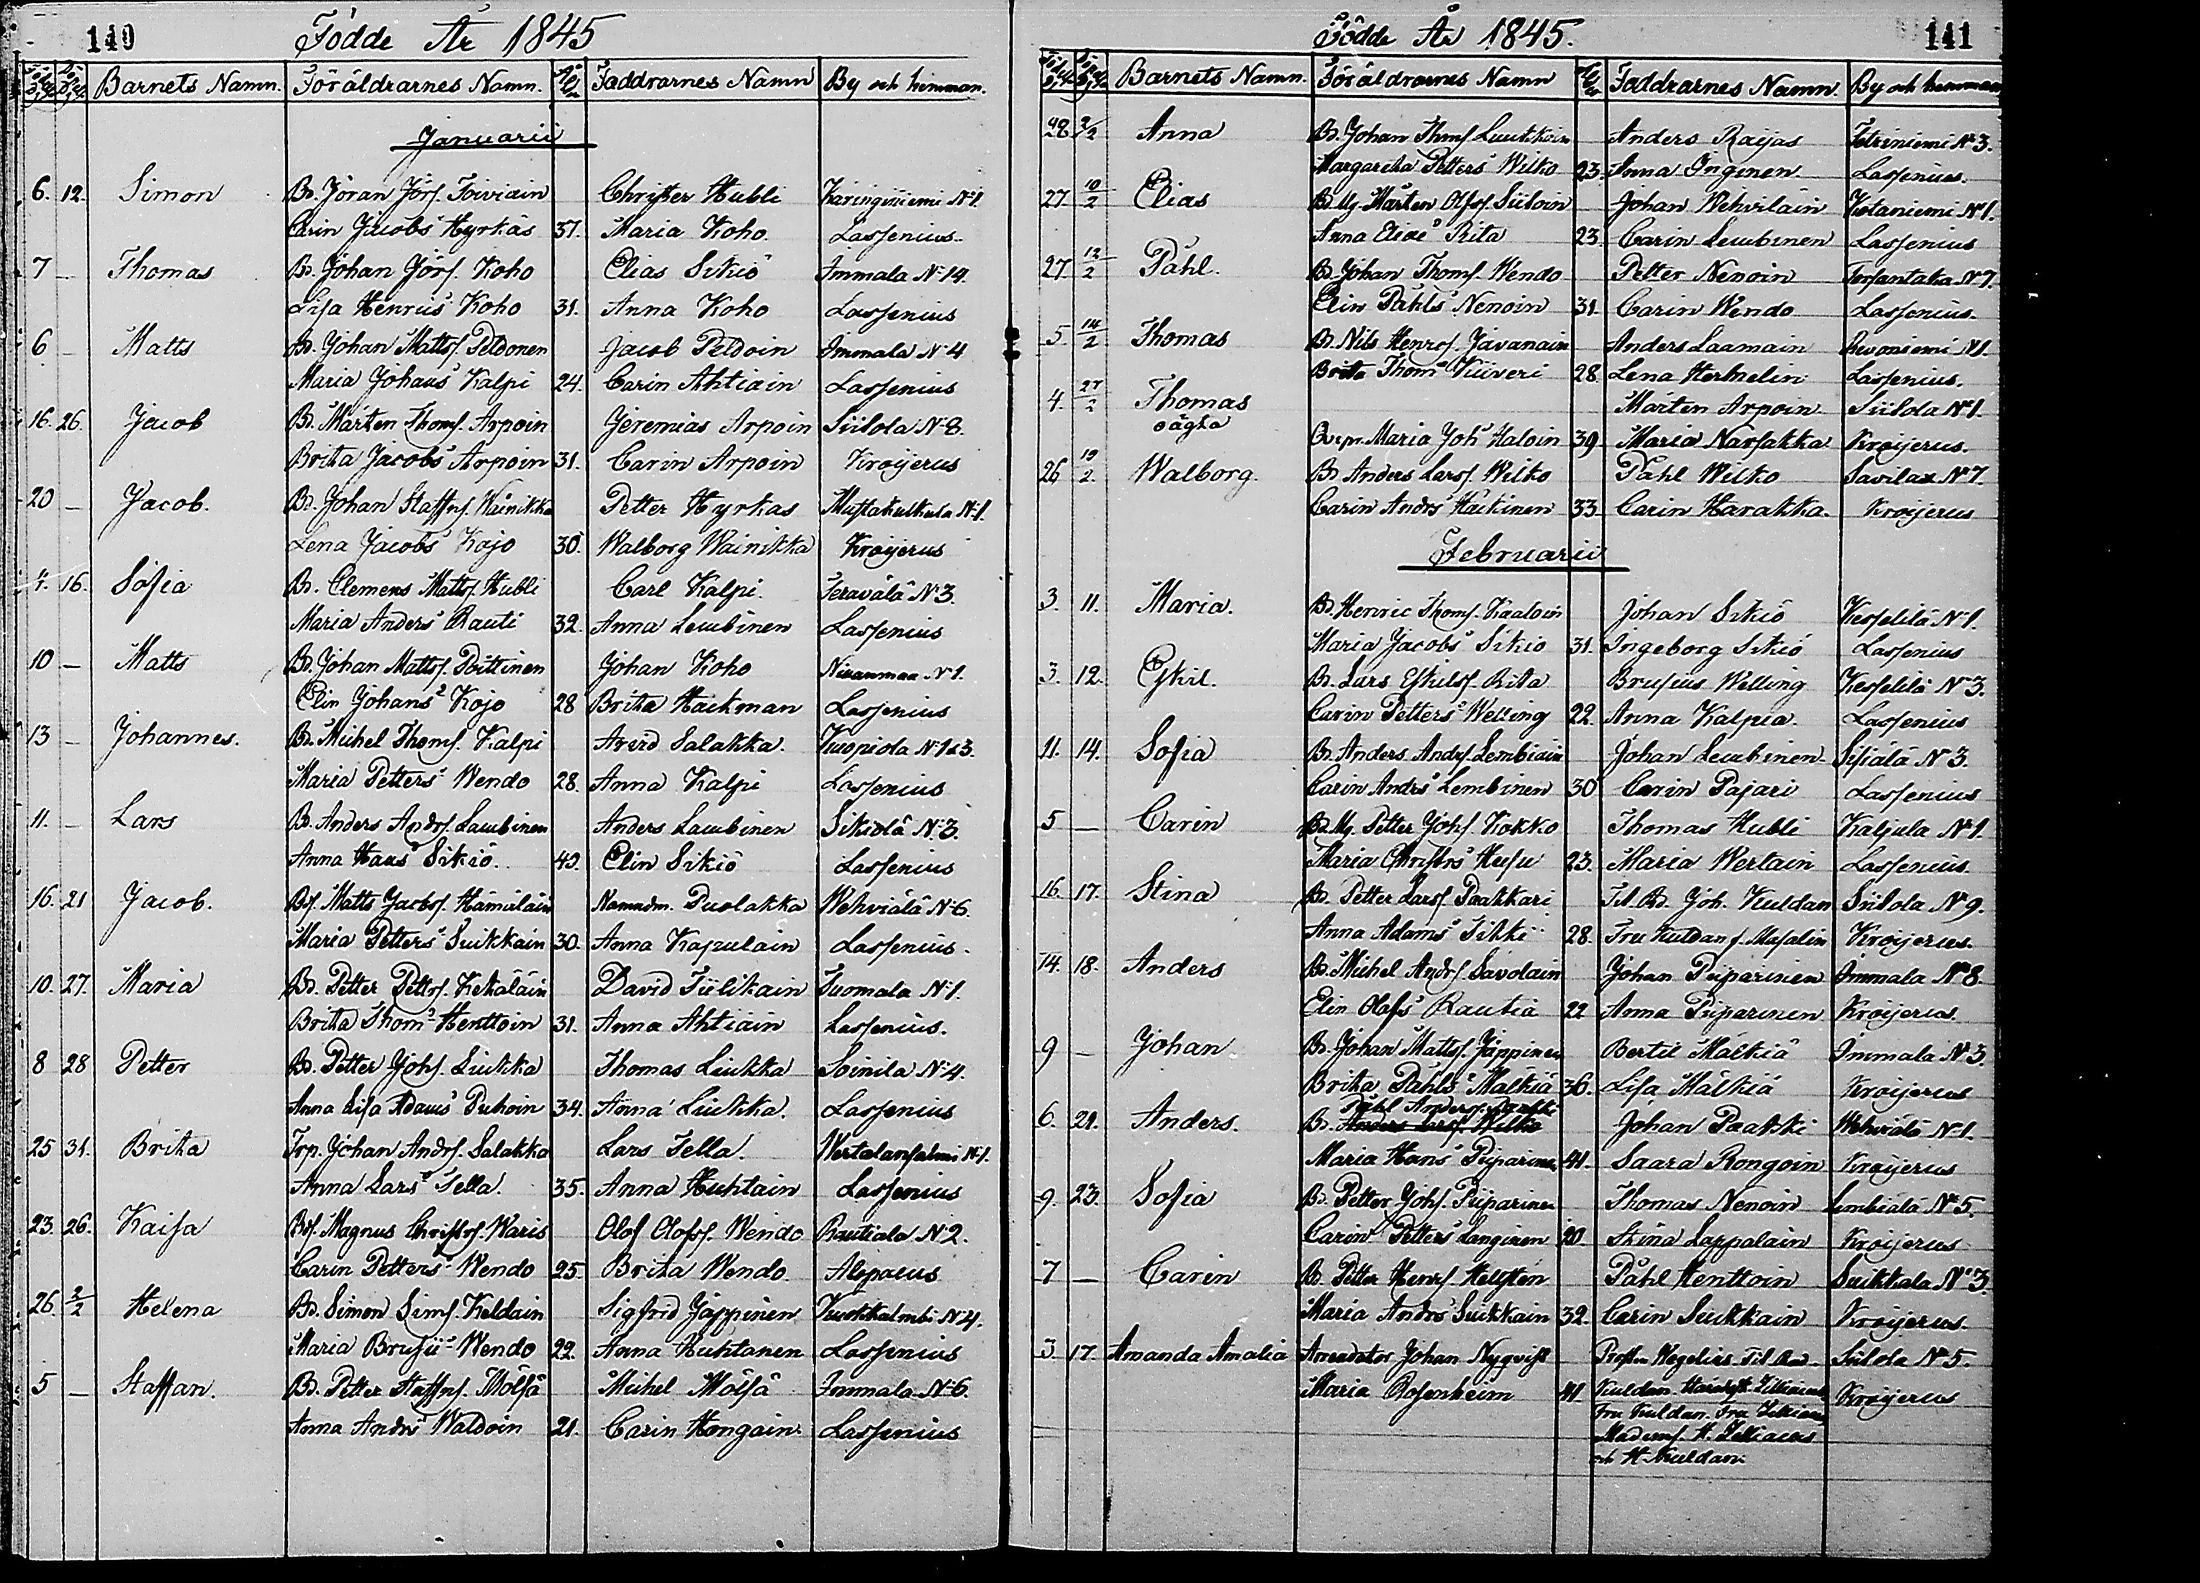 140 Födde År 1845
Barnets Namn. Föräldrarnes Namn. Faddrarnes Namn By och hemman.
Januarii
6. 12. Simon Bd. Jöran Jörs. Toiviain Christer Hubli Karinginiemi N:1
Carin Jacobs Hyrkäs 37. Maria Koho. Lassenius
7 — Thomas Bd. Johan Jörs. Koho Elias Sikiö Immala N:14.
Lisa Henrics Koho 31. Anna Koho Lassenius
6 — Matts Bd. Johan Matts. Peldonen Jacob Peldoin Immala N:4
Maria Johans Kalpi 24. Carin Ahtiain Lassenius
16. 26. Jacob B. Mårten Thoms. Arpoin Jeremias Arpoin Siilola N:8.
Brita Jacobs Arpoin 31. Carin Arpoin Kroijerus
20 — Jacob. Bd. Johan Staffns. Wainikka Petter Hyrkas Mustakulkula N:1.
Lena Jacobs Kojo 30. Walborg Wainikka Kroijerus
4. 16. Sofia Bd. Clemens Matts. Hubli Carl Kalpi. Terävälä N:3.
Maria Anders Rauti 32. Anna Lembinen Lassenius
10 — Matts Bd. Johan Matts. Poittinen Johan Koho N:1.
Elin Johans Kojo 28 Brita Hackman Lassenius
13 — Johannes. Bd. Michel Thoms. Kalpi Arvid Salakka. Kuopiola N:1 a 3.
Maria Petters Wendo 28. Anna Kalpi Lassenius
11. — Lars B. Anders Andrs. Lembinen Anders Lembinen Sikiölä N:3.
Anna Hans Sikiö. 49. Elin Sikiö Lassenius
16. 21 Jacob. Bs. Matts Jacobs. Hämäläin Namndm. Puolakka Wehviälä N:6.
Maria Petters Suikkain 30. Anna Kapulain Lassenius
10. 27. Maria Bd. Petter Petts. Kekäläin David Tiilikain Suomala N:1.
Brita Thoms Henttoin 31. Anna Ahtiain Lassenius.
8 28 Petter Bd. Petter Johs. Liukka Thomas Liukka Soinila N:4.
Anna Lisa Adams Puhoin 34. Anna Liukka. Lassenius
25 31. Brita Torp. Johan Andrs. Salakka Lars Tella. Wertalansalmi N:1.
Anna Lars Tella. 35. Anna Huhtain Lassenius
23. 26. Kaisa Bs. Magnus Christers. Waris Olof Olofs. Wendo Rautiala N:2.
Carin Petters Wendo 25. Brita Wendo. Alopaeus
26. 2/2 Helena Bd. Simon Sims. Keldain Sigfrid Jäppinen Kuokkalmbi N:4.
Maria Brusii Wendo 22. Anna Huhtanen Lassenius
5 — Staffan. Bd. Petter Staffns. Mölsä Michel Mölsä Immala N:6
Anna Andrs Waldoin 21. Carin Hongain. Lassenius
Födde År 1845. 141
Barnets Namn. Föräldrarnes Namn Faddrarnes Namn. By och hemman
28 2/2 Anna Bd. Johan Thoms. Luukkoin Anders Raijas Tetriniemi N:3.
Margareta Petters Wilko 23. Anna Inginen Lassenius.
27 10/2 Elias Mårten Olofs. Siiloin Johan Wehvilain Kotaniemi N:1.
Anna Eliae Rita 23 Carin Lembinen Lassenius
27 12/2 Påhl. Bd Johan Thoms. Wendo Petter Nenoin Torsantaka N:7.
Elin Påhls Nenoin 31. Carin Wendo Lassenius
5 14/2 Thomas Bd. Nils Henrs. Javanain Anders Laamain N:1
Brita Thoms Kiiveri 28 Lena Hermelin Lassenius.
4. 27/2 Thomas Mårten Arpoin Siilola N:1.
oägta Maria Joh Haloin 39 Maria Narsakka Kroijerus.
26 19/2. Walborg. Bd Anders Lars. Wilko Påhl Wilko Savilax N:7.
Carin Andrs Häikinen 33. Carin Harakka. Kroijerus
Februarii
3. 11. Maria. Bd. Henric Thoms. Kaaloin Johan Sikiö Kesselilä N:1.
Maria Jacobs Sikio 31. Ingeborg Sikiö Lassenius
3. 12. Eskil. Bd. Lars Eskils. Rita Brusius Welling Kesselilä N:3.
Carin Petters Welling 22. Anna Kalpia. Lassenius
11. 14. Sofia Bd. Anders Andrs. Lembiain Johan Lembinen Sipiälä N:3.
Carin Andrs Lembinen 30 Carin Pajari Lassenius
5 — Carin Bd. Petter Johs. Kokko Thomas Hubli Kaljula N:1.
Maria Christers Husu 23. Maria Wertain Lassenius.
16. 17. Stina Bd. Petter Lars. Paakkari Til. Rd. Joh. Kuldan Siilola N:9.
Anna Adams Tikki 28. Fru Kuldan f. Masalin Kroijerus.
14. 18. Anders Bd. Michel Andrs. Savolain Johan Piiparinen Immala N:8.
Elin Olofs Rautia 22 Anna Piiparinen Kroijerus.
9 — Johan Bd. Johan Matts. Jäppinen Bertil Mälkiä Immala N:3
Brita Påhls Mälkiä 36. Lisa Mälkiä Kroijerus
Påhl Anders. Paakki
6. 21. Anders. Bd. Anders Lars. Wilko Johan Paakki Wehviälä N:1.
Maria Hans Piiparinen 41. Saara Rongoin Kroijerus
9. 23. Sofia Bd. Petter Johs. Piiparinen Thomas Nenoin Lembiälä N:5.
Carin Petters Langinen 20. Stina Lappalain Kroijerus
7 — Carin Bd. Petter Henrs. Hellstén Påhl Henttoin Suikkala N:3.
Maria Andrs Suikkain 32. Carin Suikkain Kroijerus.
3 17. Amanda Amalia Arrendator Johan Nyqvist Prosten Hegelius Til. Rd. Siilola N:5.
Maria Rosenheim 41. Kuldan Kroijerus
Fru Kuldan. Fru
och H. Kuldan.